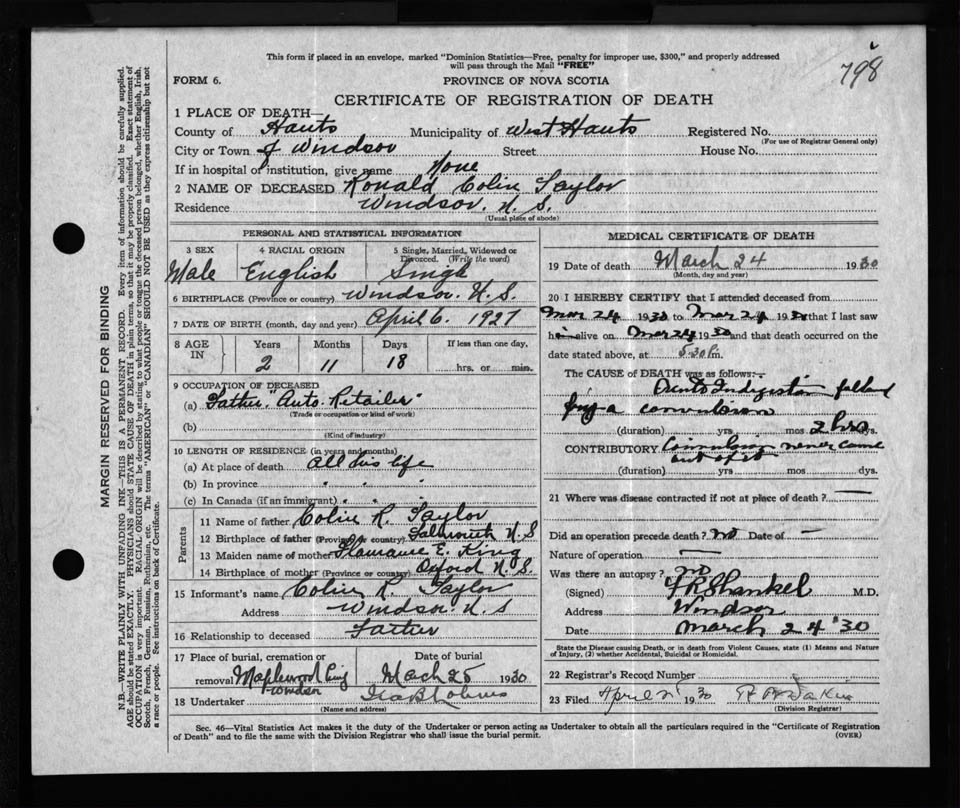 This form if placed in an envelope, marked "Dominion Statistics—Free, penalty for improper use, $300," and properly addressed
will pass through the Mail "FREE"
798
FORM 6.
PROVINCE OF NOVA SCOTIA
CERTIFICATE OF REGISTRATION OF DEATH
1 PLACE OF DEATH—
County of Hants Municipality of West Hants Registered No.
(For use of Registrar General only)
City or Town of Windsor Street House No.
If in hospital or institution, give name None
2 NAME OF DECEASED Ronald Colin Taylor
Residence Windsor. N. S.
(Usual place of abode)
PERSONAL AND STATISTICAL INFORMATION
3 SEX 4 RACIAL ORIGIN 5 Single, Married, Widowed or
Divorced. (Write the word)
Male English Single
6 BIRTHPLACE (Province or country) Windsor. N. S.
7 DATE OF BIRTH (month, day and year) April 6. 1927
8 AGE IN Years Months Days If less than one day,
2 11 18 hrs. or min.
9 OCCUPATION OF DECEASED
(a) Father "Auto. Retailer"
(Trade or occupation or kind of work)
(b)
(Kind of industry)
10 LENGTH OF RESIDENCE (in years and months)
(a) At place of death All his life
(b) In province " " "
(c) In Canada (if an immigrant) " " "
Parents
11 Name of father Colin R. Taylor
12 Birthplace of father (Province or country) Falmouth N. S
13 Maiden name of mother E. King
14 Birthplace of mother (Province or country) Oxford N. S.
15 Informant's name Colin R. Taylor
Address Windsor. N. S
16 Relationship to deceased Father
17 Place of burial, cremation or Date of burial
removal Maplewood March 25 1930
18 Undertaker
(Name and address)
MEDICAL CERTIFICATE OF DEATH
19 Date of death March 24 1930
(Month, day and year)
20 I HEREBY CERTIFY that I attended deceased from
Mar 24 1930 to Mar 24 1930 that I last saw
him alive on Mar 24 1930 and that death occurred on the
date stated above, at 5.30 Pm.
The CAUSE OF DEATH was as follows:—
Indigestion
a convulsion
(duration) yrs. mos. 2 hrs days.
CONTRIBUTORY never came
out of it
(duration) yrs. mos. dys.
21 Where was disease contracted if not at place of death? —
Did an operation precede death? No Date of —
Nature of operation —
Was there an autopsy? No
(Signed) F R Shankel M.D.
Address Windsor
Date March 24 '30
State the Disease causing Death, or in death from Violent Causes, state (1) Means and Nature
of Injury, (2) whether Accidental, Suicidal or Homicidal.
22 Registrar's Record Number
23 Filed April 2 1930
(Division Registrar)
Sec. 46—Vital Statistics Act makes it the duty of the Undertaker or person acting as Undertaker to obtain all the particulars required in the "Certificate of Registration
of Death" and to file the same with the Division Registrar who shall issue the burial permit. (OVER)
MARGIN RESERVED FOR BINDING
N.B.—WRITE PLAINLY WITH UNFADING INK—THIS IS A PERMANENT RECORD. Every item of information should be carefully supplied.
AGE should be stated EXACTLY. PHYSICIANS should STATE CAUSE OF DEATH in plain terms, so that it may be properly classified. Exact statement of
OCCUPATION is very important. RACIAL ORIGIN will be described by stating to what people or tongue the deceased person belonged, whether English, Irish,
Scotch, French, German, Russian, Ruthenian, etc. The terms "AMERICAN" or "CANADIAN" SHOULD NOT BE USED as they express citizenship but not
a race or people. See instructions on back of Certificate.